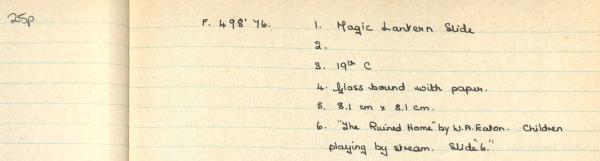 25p
F. 498'76.
1. Magic Lantern Slide
2.
3. 19th C
4. Glass bound with paper.
5. 8.1 cm x 8.1 cm.
6. "The Ruined Home" by W.A. Eaton. Children
playing by stream. Slide "6."